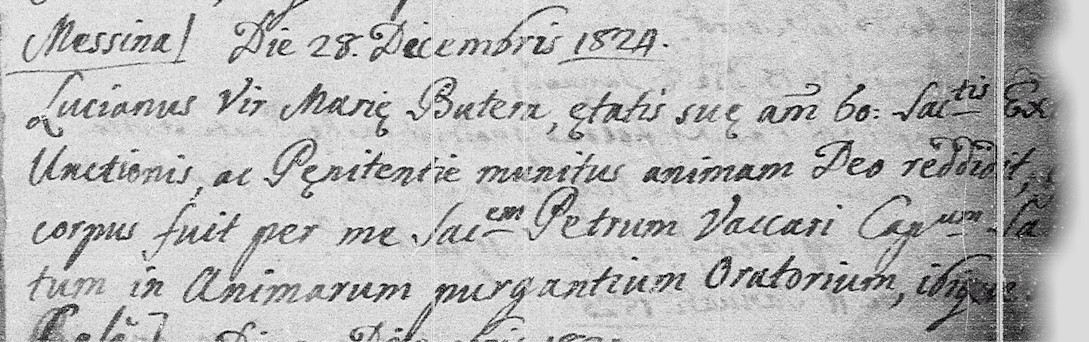 Messina] Die 28. Decembris 1824.
Lucianus Vir Marię Butera, ętatis suę añ 60: Sac^tis Ex
Unctionis, ac Pęnitentie munitus animam Deo reddidit,
corpus fuit per me Sac^em Petrum Vaccari Cap^um
tum in Animarum purgantium Oratorium, ibique
Die Decembris